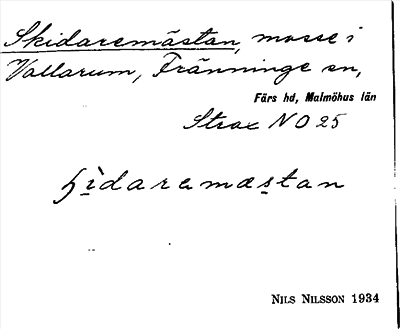 Skidaremästan, mosse i
Vallarum, Fränninge sn,
Färs hd, Malmöhus län
Strax NO 25
ʃì̀daremæstan
NILS NILSSON 1934